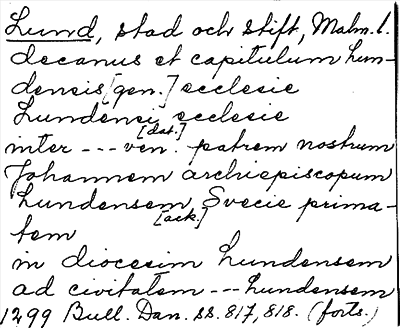 Lund, stad och stift, Malm. l.
decanus et capitulum Lun-
densis [gen.] ecclesie
Lundensi ecclesie
[dat.]
inter --- ven. patrem nostrum
Johannem archiepiscopum
Lundensem, Svecie prima-
[ack.]
tem
in diocesim Lundensem
ad civitatem --- Lundensem
1299 Bull. Dan. ss. 817, 818. (forts.)